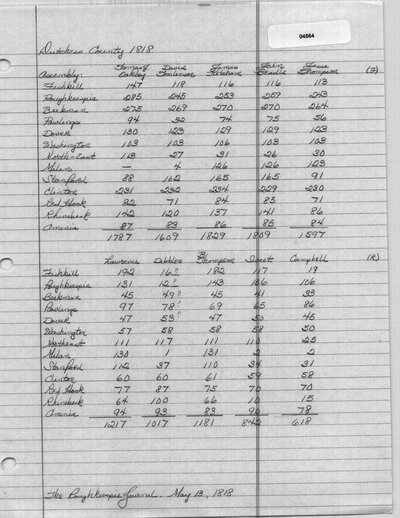 04584
Dutchess County 1818
Thomas J. David James John Jesse
Assembly: Oakley Tomlinson Ketcham Beadle Thompson (F)
Fishkill 147 118 116 116 113
Poughkeepsie 285 245 253 259 243
Beekman 275 269 270 270 264
Pawlings 94 32 74 75 56
Dover 130 123 129 129 123
Washington 103 103 106 103 103
North-East 113 27 31 26 30
Milan — 4 126 126 123
Stanford 88 102 165 165 91
Clinton 231 232 234 229 230
Red Hook 82 71 84 85 71
Rhinebeck 142 120 137 141 86
Amenia 87 83 86 85 84
1787 1609 1829 1809 1597
Lawrence Dibblee Thompson Sweet Campbell (R)
Fishkill 192 16? 182 117 19
Poughkeepsie 131 12? 143 136 106
Beekman 45 49? 45 41 33
Pawlings 97 78? 69 65 86
Dover 47 53? 47 50 45
Washington 57 58 58 58 50
Northeast 111 117 111 110 25
Milan 130 1 131 2 2
Stanford 112 37 110 34 31
Clinton 60 60 61 59 58
Red Hook 77 87 75 70 70
Rhinebeck 64 100 66 10 15
Amenia 94 93 83 90 78
1217 1017 1181 842 618
The Poughkeepsie Journal. May 13, 1818